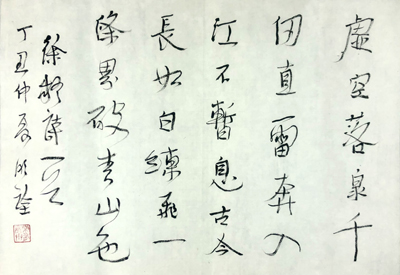 虛空落泉千
仞直雷奔入
江不暫息古今
長如白練飛一
條界破青山色
徐凝詩一首
丁丑仲夏